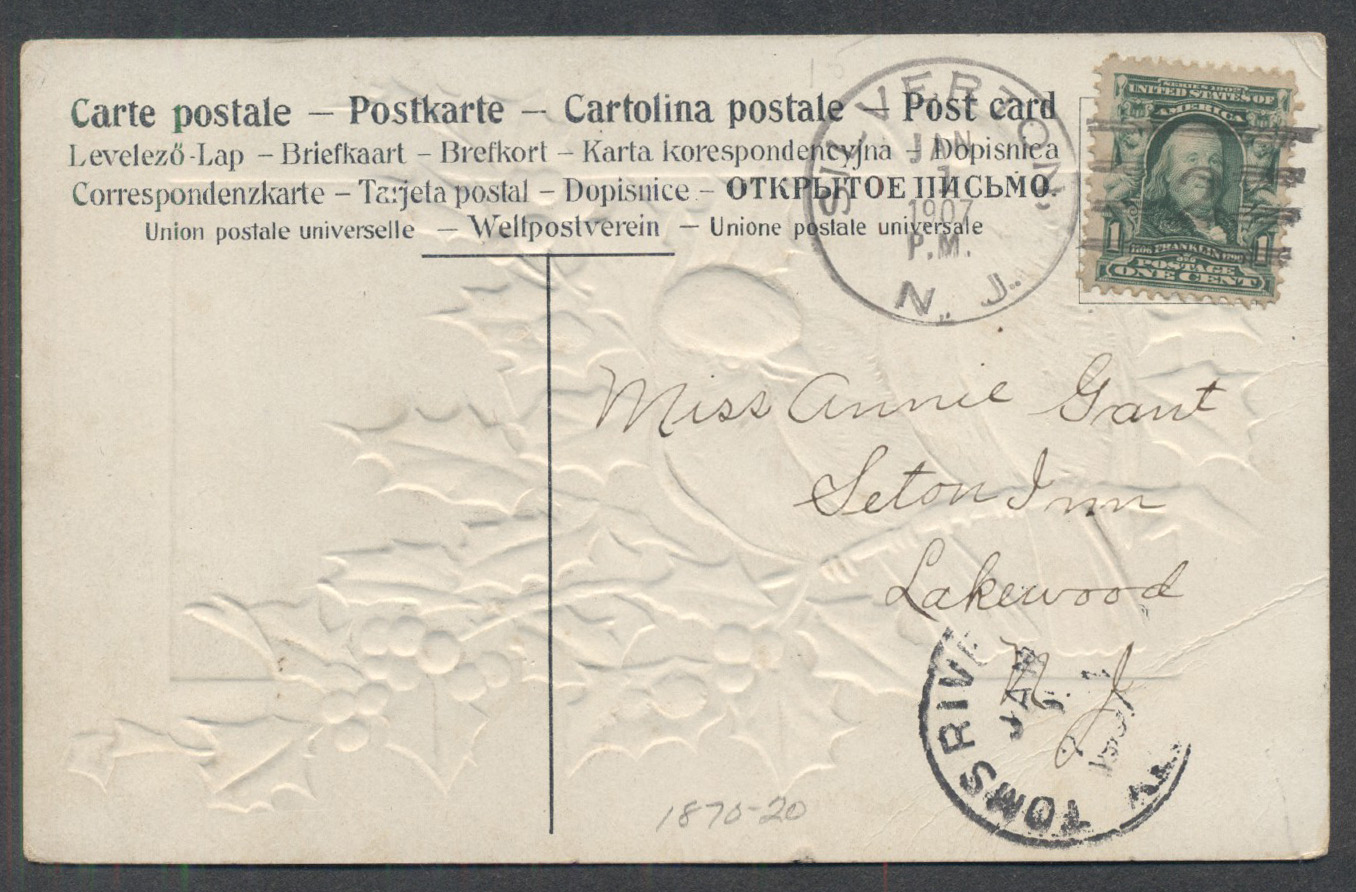 Carte postale — Postkarte — Cartolina postale — Post card
Levelező-Lap – Briefkaart – Brefkort – Karta korespondencyjna – Dopisnica
Correspondenzkarte – Tarjeta postal – Dopisnice – ОТКРЫТОЕ ПИСЬМО.
Union postale universelle — Weltpostverein — Unione postale universale
SILVERTON,
JAN
1
1907
P.M.
N. J.
SERIES 1902
UNITED STATES OF
AMERICA
1 1
1706 FRANKLIN 1790
POSTAGE
ONE CENT
Miss Annie Gant
Seton Inn
Lakewood
N. J.
TOMS RIVE
JAN
1870-20